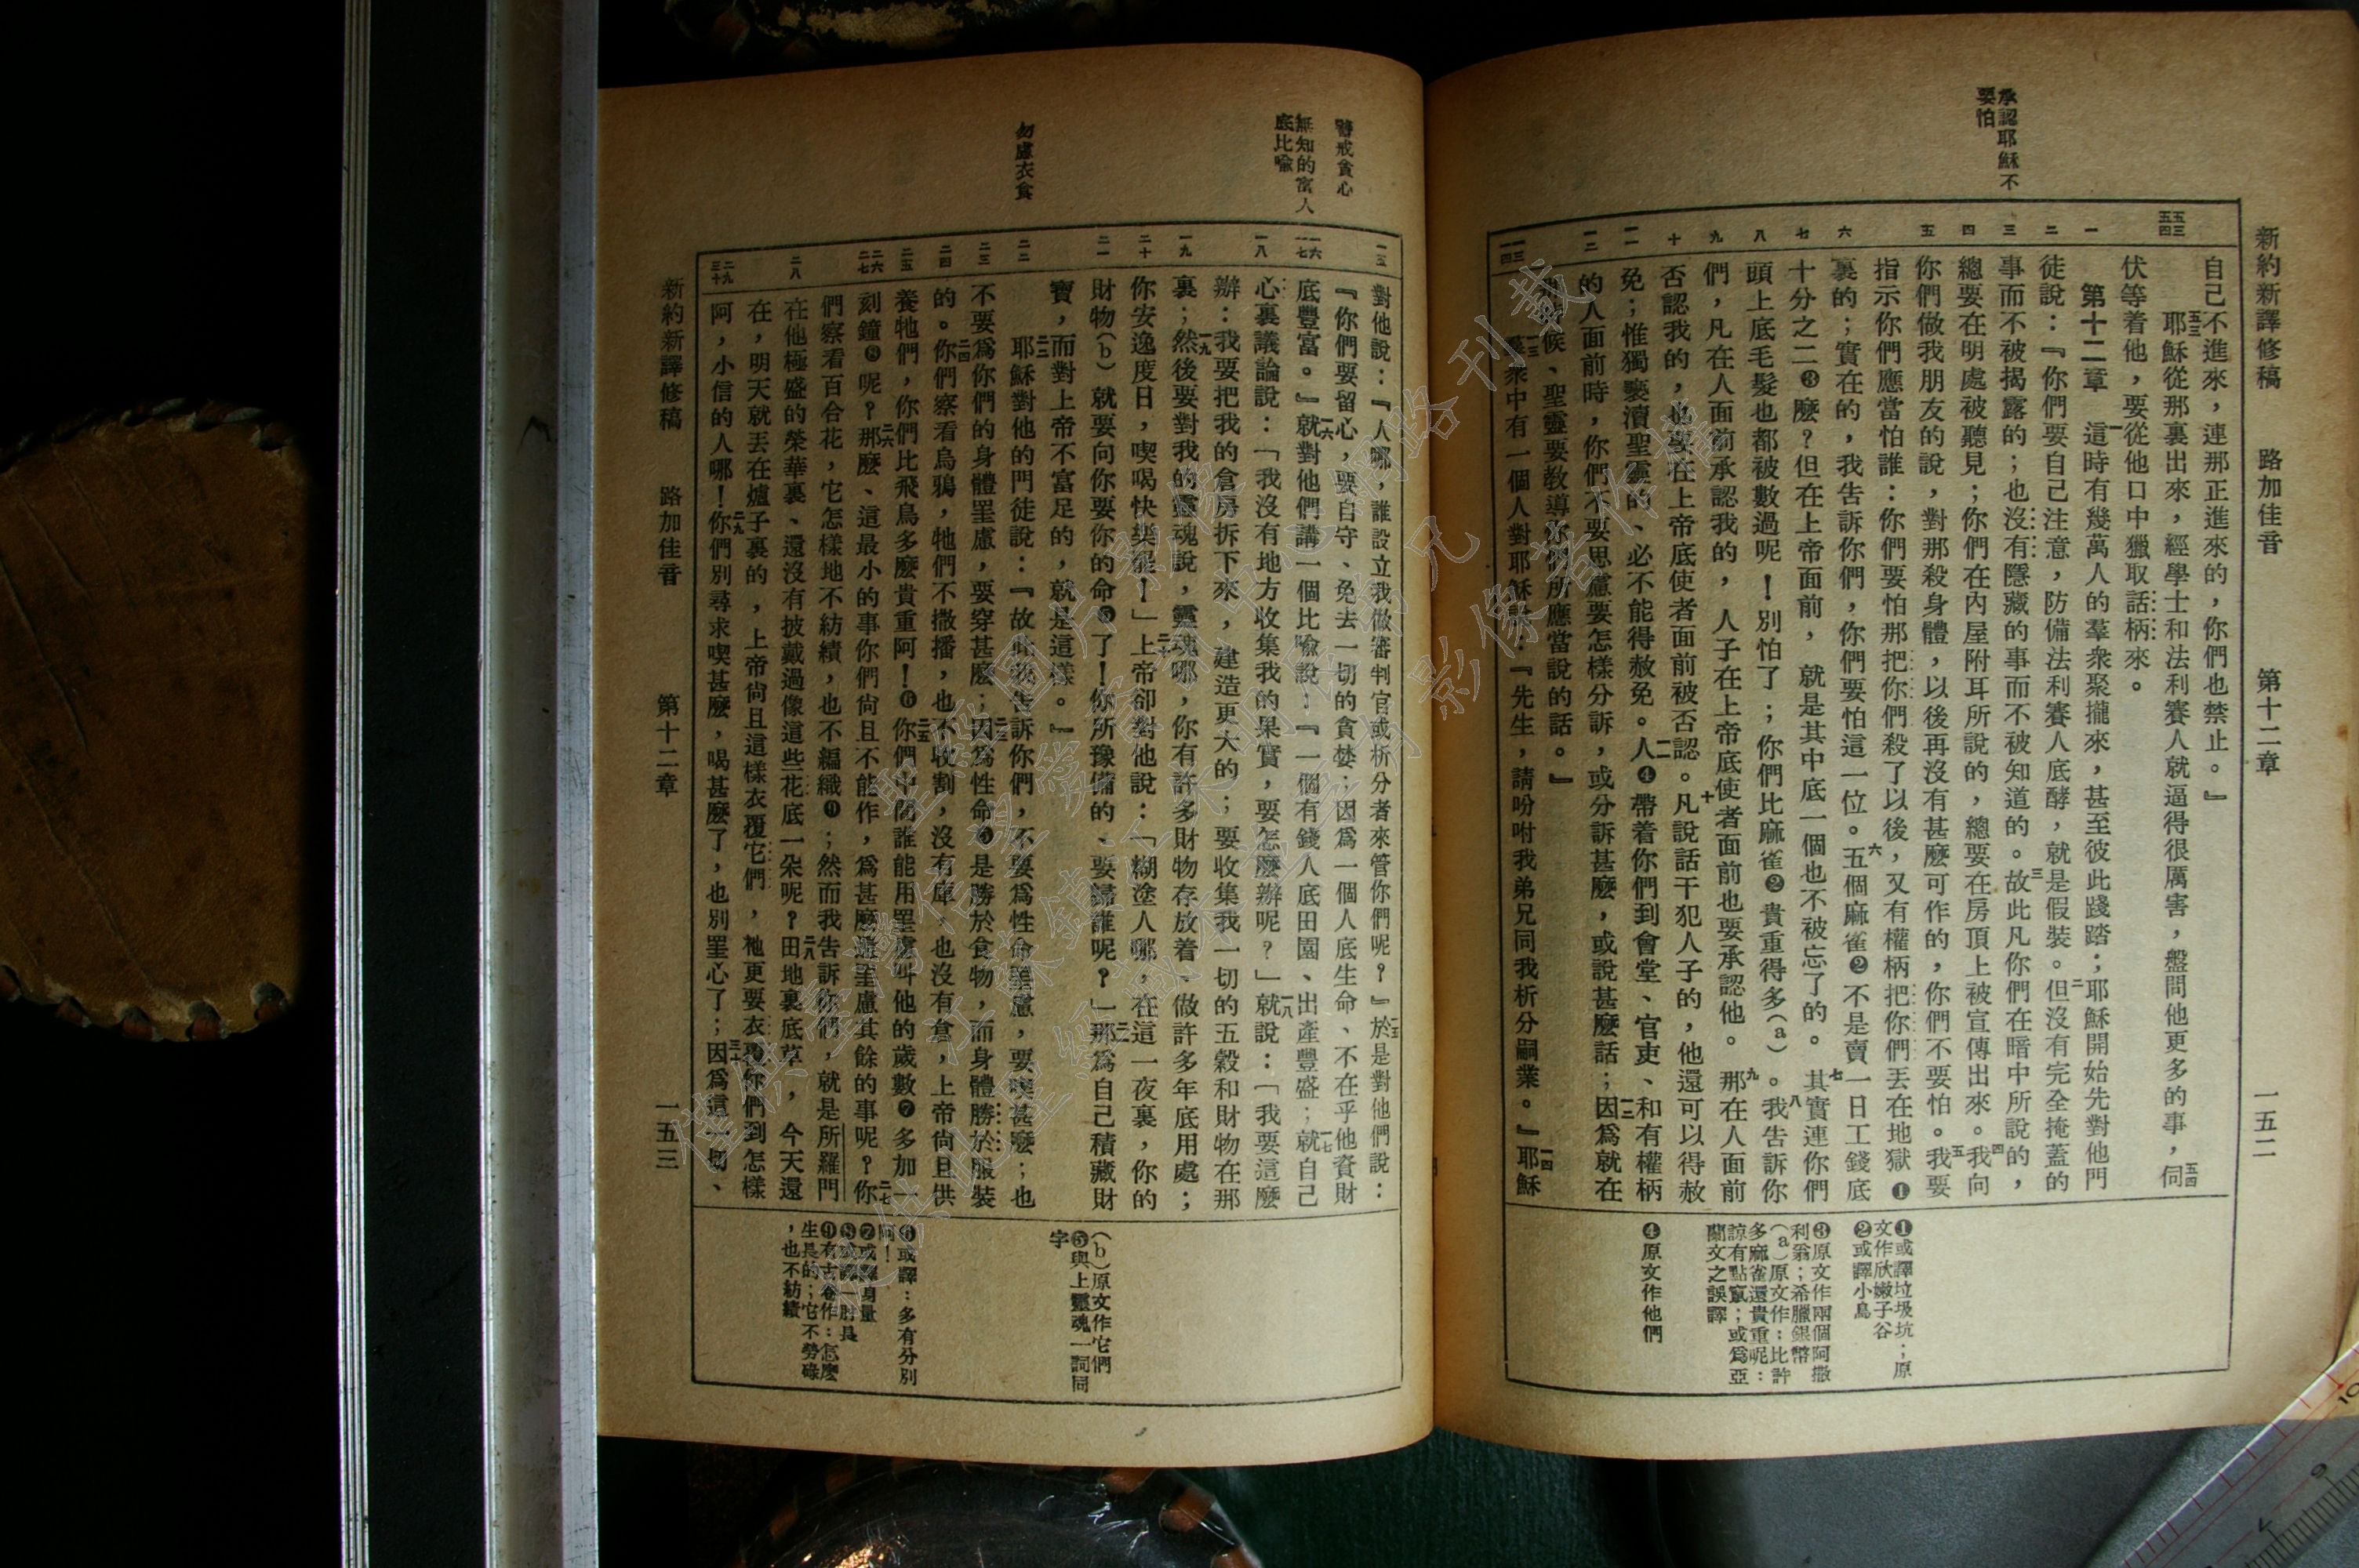 新約新譯修稿　路加佳音　第十二章　一五二
承認耶穌不
要怕
五三
五四
一
二
三
四
五
六
七
八
九
十
一一
一二
一三
一四
自己不進來，連那正進來的，你們也禁止。』
五三耶穌從那裏出來，經學士和法利賽人就逼得很厲害，盤問他更多的事，五四伺
伏等着他，要從他口中獵取話柄來。
第十二章　一這時有幾萬人的羣衆聚攏來，甚至彼此踐踏；耶穌開始先對他門
徒說：『你們要自己注意，防備法利賽人底酵，就是假裝。二但沒有完全掩蓋的
事而不被揭露的；也沒有隱藏的事而不被知道的。三故此凡你們在暗中所說的，
總要在明處被聽見；你們在內屋附耳所說的，總要在房頂上被宣傳出來。四我向
你們做我朋友的說，對那殺身體，以後再沒有甚麼可作的，你們不要怕。五我要
指示你們應當怕誰：你們要怕那把你們殺了以後，又有權柄把你們丟在地獄❶
裏的；實在的，我告訴你們，你們要怕這一位。六五個麻雀❷不是賣一日工錢底
十分之二❸麼？但在上帝面前，就是其中底一個也不被忘了的。七其實連你們
頭上底毛髮也都被數過呢！別怕了；你們比麻雀❷貴重得多（a）。八我告訴你
們，凡在人面前承認我的，人子在上帝底使者面前也要承認他。九那在人面前
否認我的，也要在上帝底使者面前被否認。十凡說話干犯人子的，他還可以得赦
免；惟獨褻瀆聖靈的、必不能得赦免。一一人❹帶着你們到會堂、官吏、和有權柄
的人面前時，你們不要思慮要怎樣分訴，或分訴甚麼，或說甚麼話；一二因爲就在
候、聖靈要教導你們所應當說的話。』
一三衆中有一個人對耶穌：『先生，請吩咐我弟兄同我析分嗣業。』一四耶穌
❶或譯垃圾坑；原
文作欣嫩子谷
❷或譯小鳥
❸原文作兩個阿撒
利翁；希臘銀幣
（a）原文作：比許
多麻雀還貴重呢：
諒有點竄；或爲亞
蘭文之誤譯
❹原文作他們
警戒貪心
無知的富人
底比喻
勿慮衣食
一五
一六
一七
一八
一九
二十
二一
二二
二三
二四
二五
二六
二七
二八
二九
三十
對他說：『人哪，誰設立我做審判官或析分者來管你們呢？』一五於是對他們說：
『你們要留心，要自守、免去一切的貪婪；因爲一個人底生命、不在乎他資財
底豐富。』一六就對他們講一個比喻說：『一個有錢人底田園、出產豐盛；一七就自己
心裏議論說：「我沒有地方收集我的果實，要怎麼辦呢？」一八就說：「我要這麼
辦：我要把我的倉房拆下來，建造更大的；要收集我一切的五穀和財物在那
裏；一九然後要對我的靈魂說，靈魂哪，你有許多財物存放着、做許多年底用處；
你安逸度日，喫喝快樂罷！」二十上帝卻對他說：「糊塗人哪，在這一夜裏，你的
財物（b）就要向你要你的命❺了！你所豫備的、要歸誰呢？」二一那爲自己積藏財
寶，而對上帝不富足的，就是這樣。』
二二耶穌對他的門徒說：『故此我告訴你們，不要爲性命罣慮，要喫甚麼；也
不要爲你們的身體罣慮，要穿甚麼；二三因爲性命❺是勝於食物，而身體勝於服裝
的。二四你們察看烏鴉，牠們不撒播，也不收割，沒有庫、也沒有倉，上帝尚且供
養牠們，你們比飛鳥多麼貴重阿！❻二五你們中間誰能用罣慮叫他的歲數❼多加一
刻鐘❽呢？二六那麼、這最小的事你們尚且不能作，爲甚麼還罣慮其餘的事呢？二七你
們察看百合花，它怎樣地不紡績，也不編織❾；然而我告訴你們，就是所羅門
在他極盛的榮華裏、還沒有披戴過像這些花底一朵呢？二八田地裏底草，今天還
在，明天就丟在爐子裏的，上帝尚且這樣衣覆它們，祂更要衣覆你們到怎樣
阿，小信的人哪！二九你們別尋求喫甚麼，喝甚麼了，也別罣心了；三十因爲這一切、
（b）原文作它們
❺與上靈魂一詞同
字
❻或譯：多有分別
阿！
❼或譯身量
❽或譯一肘長
❾有古卷作：怎麼
生長的；它不勞碌
，也不紡績
新約新譯修稿　路加佳音　第十二章　一五三